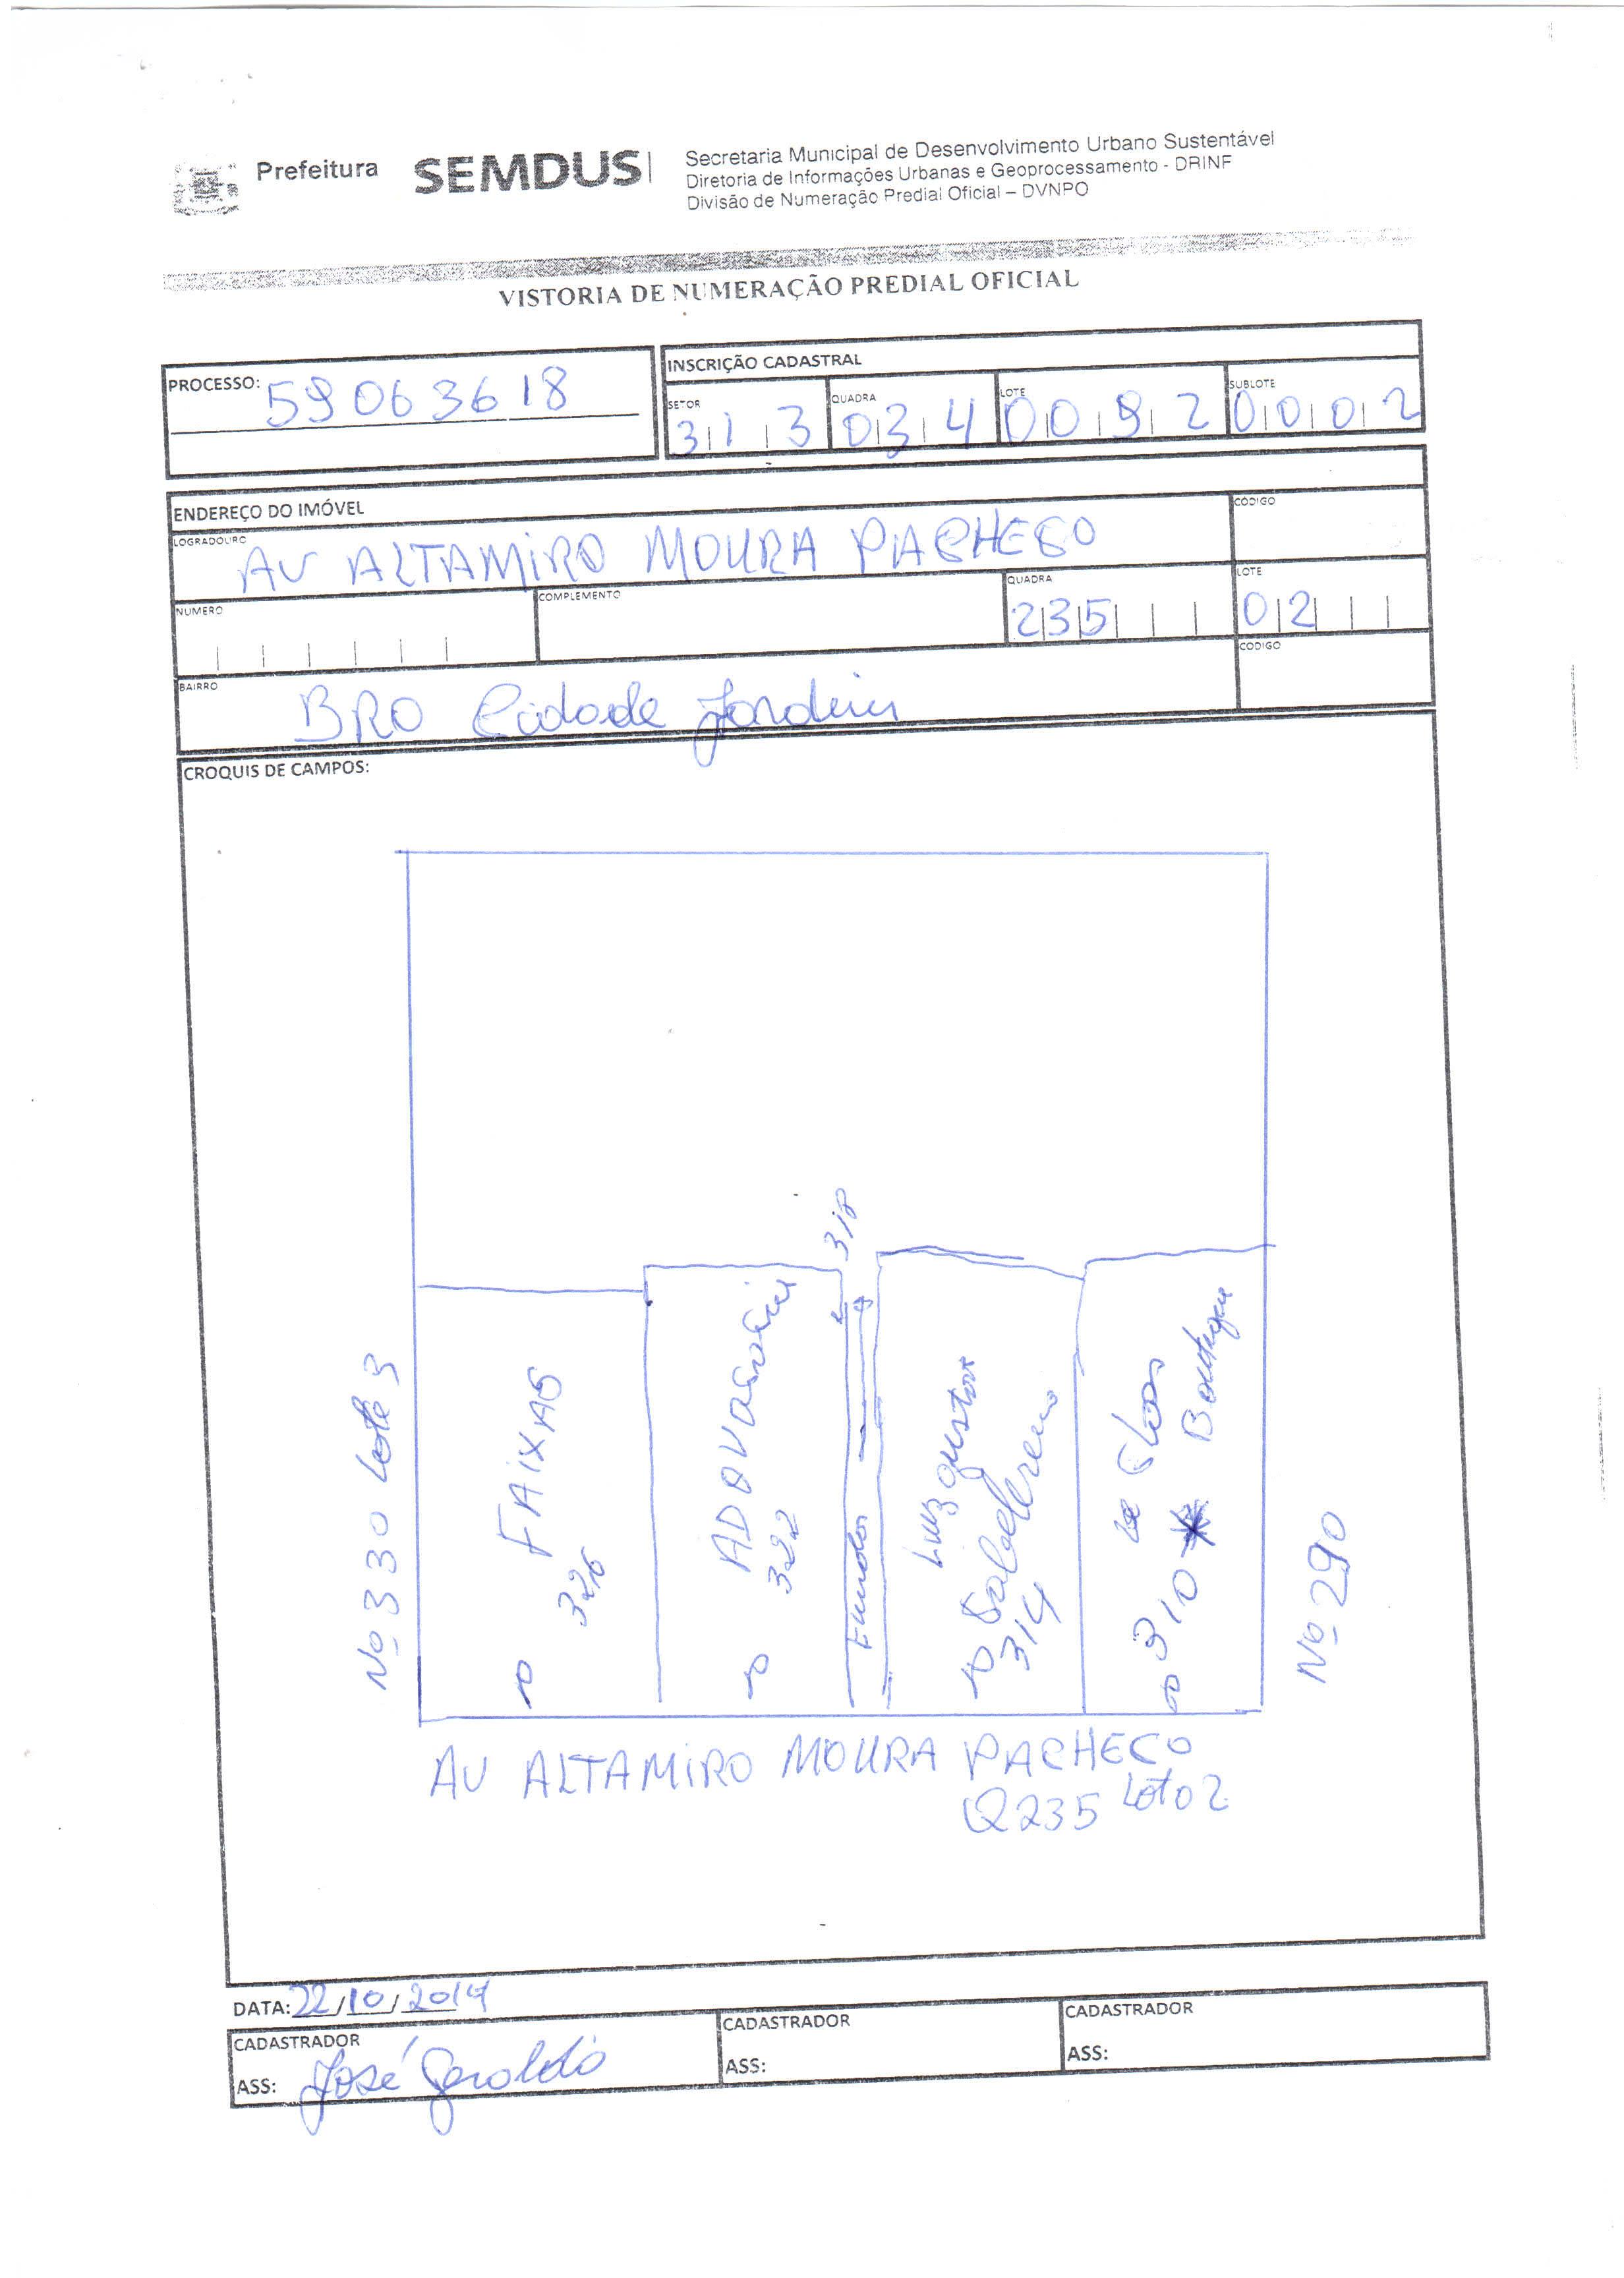 Prefeitura SEMDUS
Secretaria Municipal de Desenvolvimento Urbano Sustentável
Diretoria de Informações Urbanas e Geoprocessamento - DRINF
Divisão de Numeração Predial Oficial – DVNPO
VISTORIA DE NUMERAÇÃO PREDIAL OFICIAL
PROCESSO: 59063618
INSCRIÇÃO CADASTRAL
SETOR 313 QUADRA 034 LOTE 0092 SUBLOTE 0002
ENDEREÇO DO IMÓVEL
LOGRADOURO AV ALTAMIRO MOURA PACHECO
CÓDIGO
NUMERO
COMPLEMENTO
QUADRA 235
LOTE 02
BAIRRO BRO Cidade Jardim
CODIGO
CROQUIS DE CAMPOS:
Nº 330 Lote 3
FAIXAS
326
322
318
Fundos
Luiz Gustavo
Cabeleireiro
314
310
Boutique
Nº 290
AV ALTAMIRO MOURA PACHECO
Q235 Lote 02
DATA: 22/10/2014
CADASTRADOR
ASS: José Geraldo
CADASTRADOR
ASS:
CADASTRADOR
ASS: